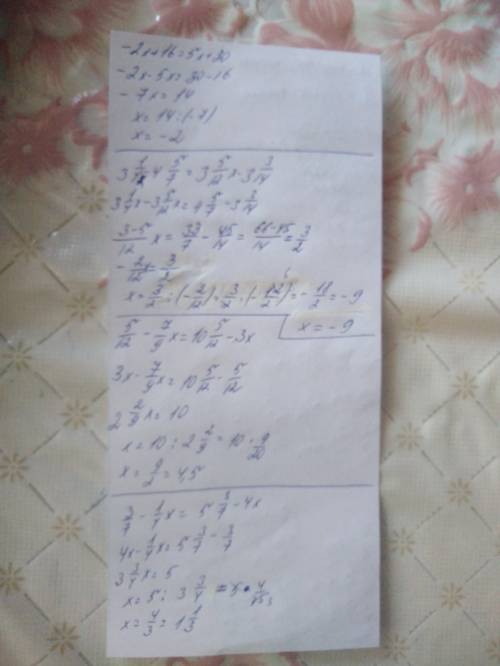 -2x+16=5x+30
-2x-5x=30-16
-7x=14
x=14:(-7)
x=-2
3 1/4x-4 5/7=3 5/12x-3 3/14
3 1/4x-3 5/12x=4 5/7-3 3/14
3-5/12 x=33/7-45/14=66-45/14=3/2
-2/12x=3/2
x=3/2:(-2/12)=3/2·(-12/2)=-18/2=-9
x=-9
5/12-7/9x=10 5/12-3x
3x-7/9x=10 5/12-5/12
2 2/9x=10
x=10:2 2/9=10·9/20
x=9/2=4,5
3/7-1/4x=5 3/7-4x
4x-1/4x=5 3/7-3/7
3 3/4x=5
x=5:3 3/4=5·4/15
x=4/3=1 1/3